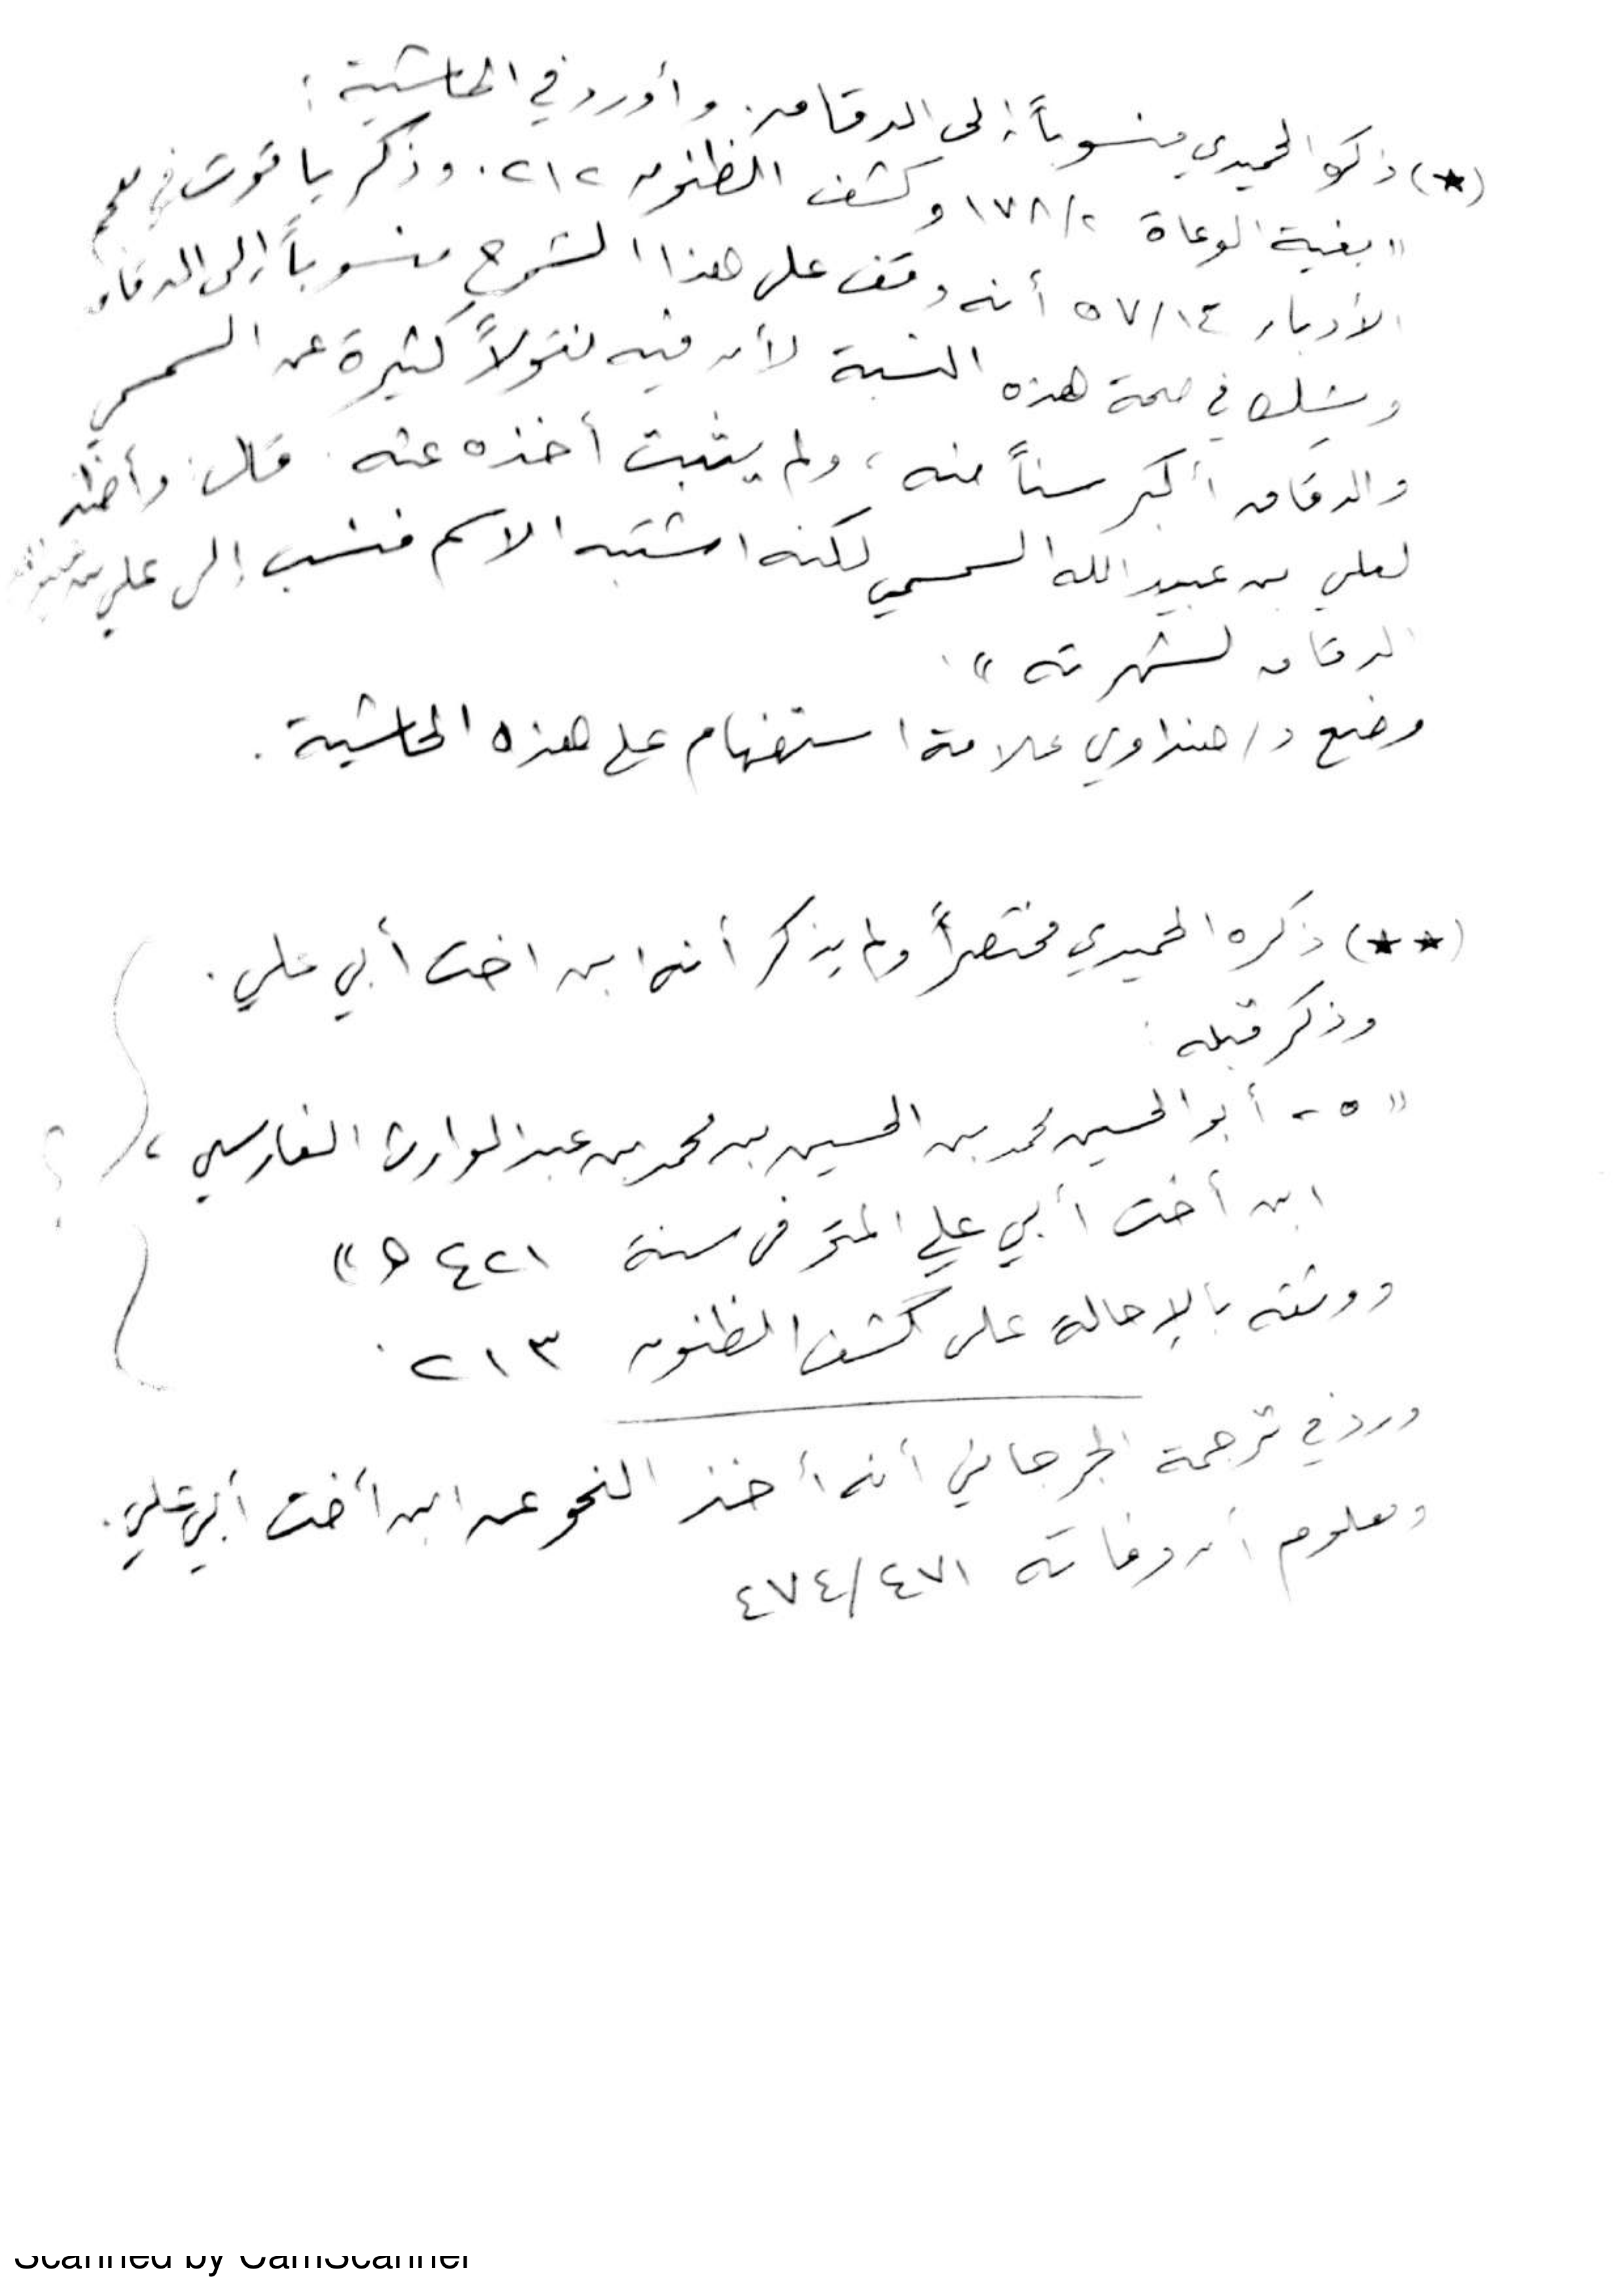 (★) ذكره الحميدي منسوباً إلى الدقاق. وأورد في الحاشية:
"بغية الوعاة ٢/١٧٨ وكشف الظنون ٢١٢. وذكر ياقوت في معجم
الأدباء ١٤/٥٧ أنه وقف على هذا الشرح منسوباً إلى الدقاق
ويشك في صحة هذه النسبة لأن فيه نقولاً كثيرة عن السمسمي
والدقاق أكبر سناً منه، ولم يثبت أخذه عنه. قال: وأظنه
لعلي بن عبيد الله السمسمي لكنه اشتبه الاسم فنسب إلى علي بن
الدقاق لشهرته".
وضع د/ هنداوي علامة استفهام على هذه الحاشية.
(★★) ذكره الحميدي مختصراً ولم يذكر أنه ابن اخت أبي علي.
وذكر قبله:
"٥ - أبو الحسين محمد بن الحسين بن محمد بن عبد الوارث الفارسي،
ابن أخت أبي علي المتوفى سنة ٤٢١ ه"
ووثقه بالإحالة على كشف الظنون ٢١٣.
ورد في ترجمة الجرجاني أنه أخذ النحو عن ابن أخت أبي علي.
ومعلوم أن وفاته ٤٧١/٤٧٤
؟
Scanned by CamScanner